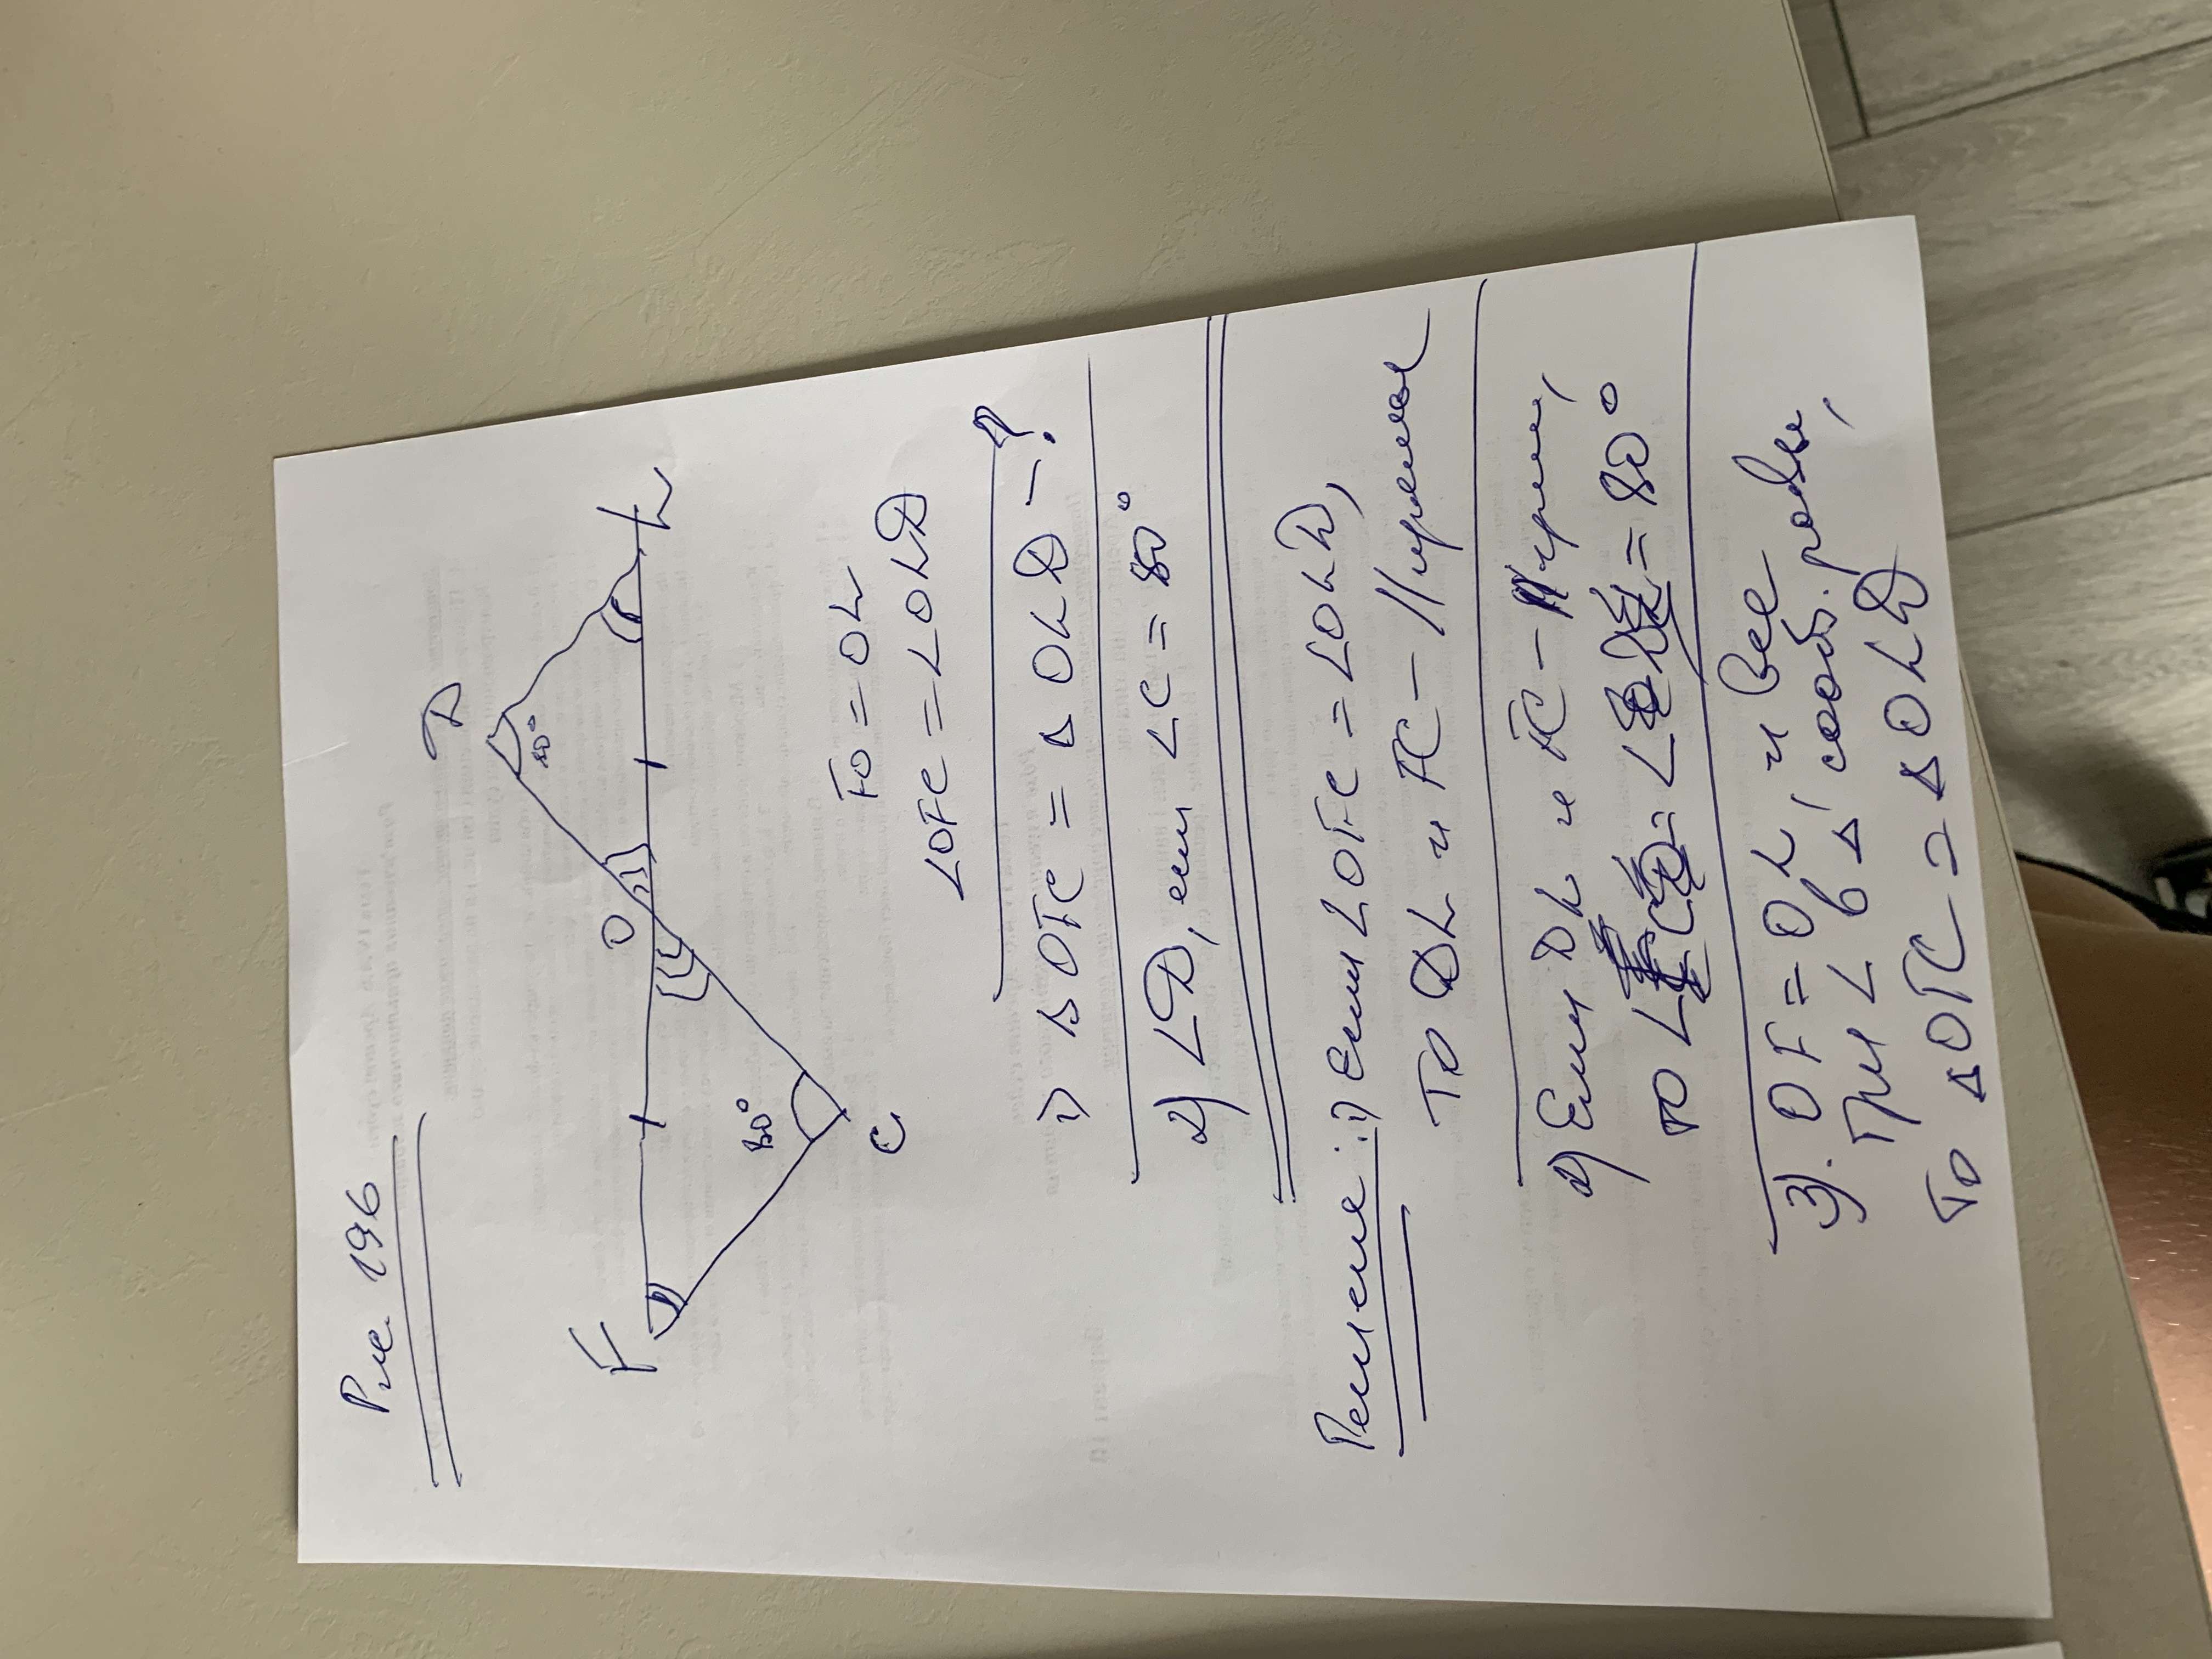 Рис 196
D
80°
F
O
L
80°
C
FO = OL
∠OFC = ∠OLD
1) ΔOFC = ΔOLD - ?
2) ∠D, если ∠C = 80°
Решение: 1) Если ∠OFC = ∠OLD,
то DL и FC - || прямые
2) Если DL и FC - || прям,
то ∠C = ∠ = 80°
3). OF = OL, и все
три ∠ в Δ' соотв. равны,
то ΔOFC = ΔOLD